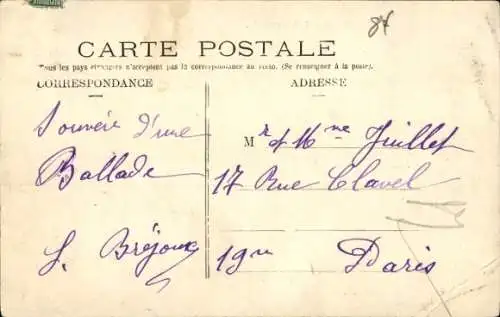 84
CARTE POSTALE
Tous les pays étrangers n'acceptent pas la correspondance au recto. (Se renseigner à la poste).
CORRESPONDANCE
ADRESSE
Souvenir d'une
Ballade
J. Bréjoux
Mr et Mme Juillet
17 Rue Clavel
19me Paris